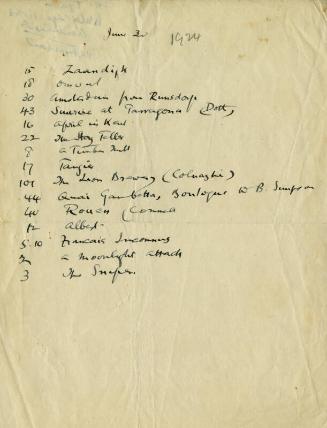 June 20 1924
15 Zaandijk
18
30 Amsterdam from Runsdorp
43 Sunrise at Tarragona (Dott)
16 April in Kent
22 The Hay
9 a Timber Mill
17 Tangier
101 The Lion Brewery (Colnaghi)
44 Quai Gambetta, Boulogne W B. Simpson
40 Rouen (Connell
12 Albert
5.10 Francais Inconnus
2 a moonlight attack
3 The Sniper